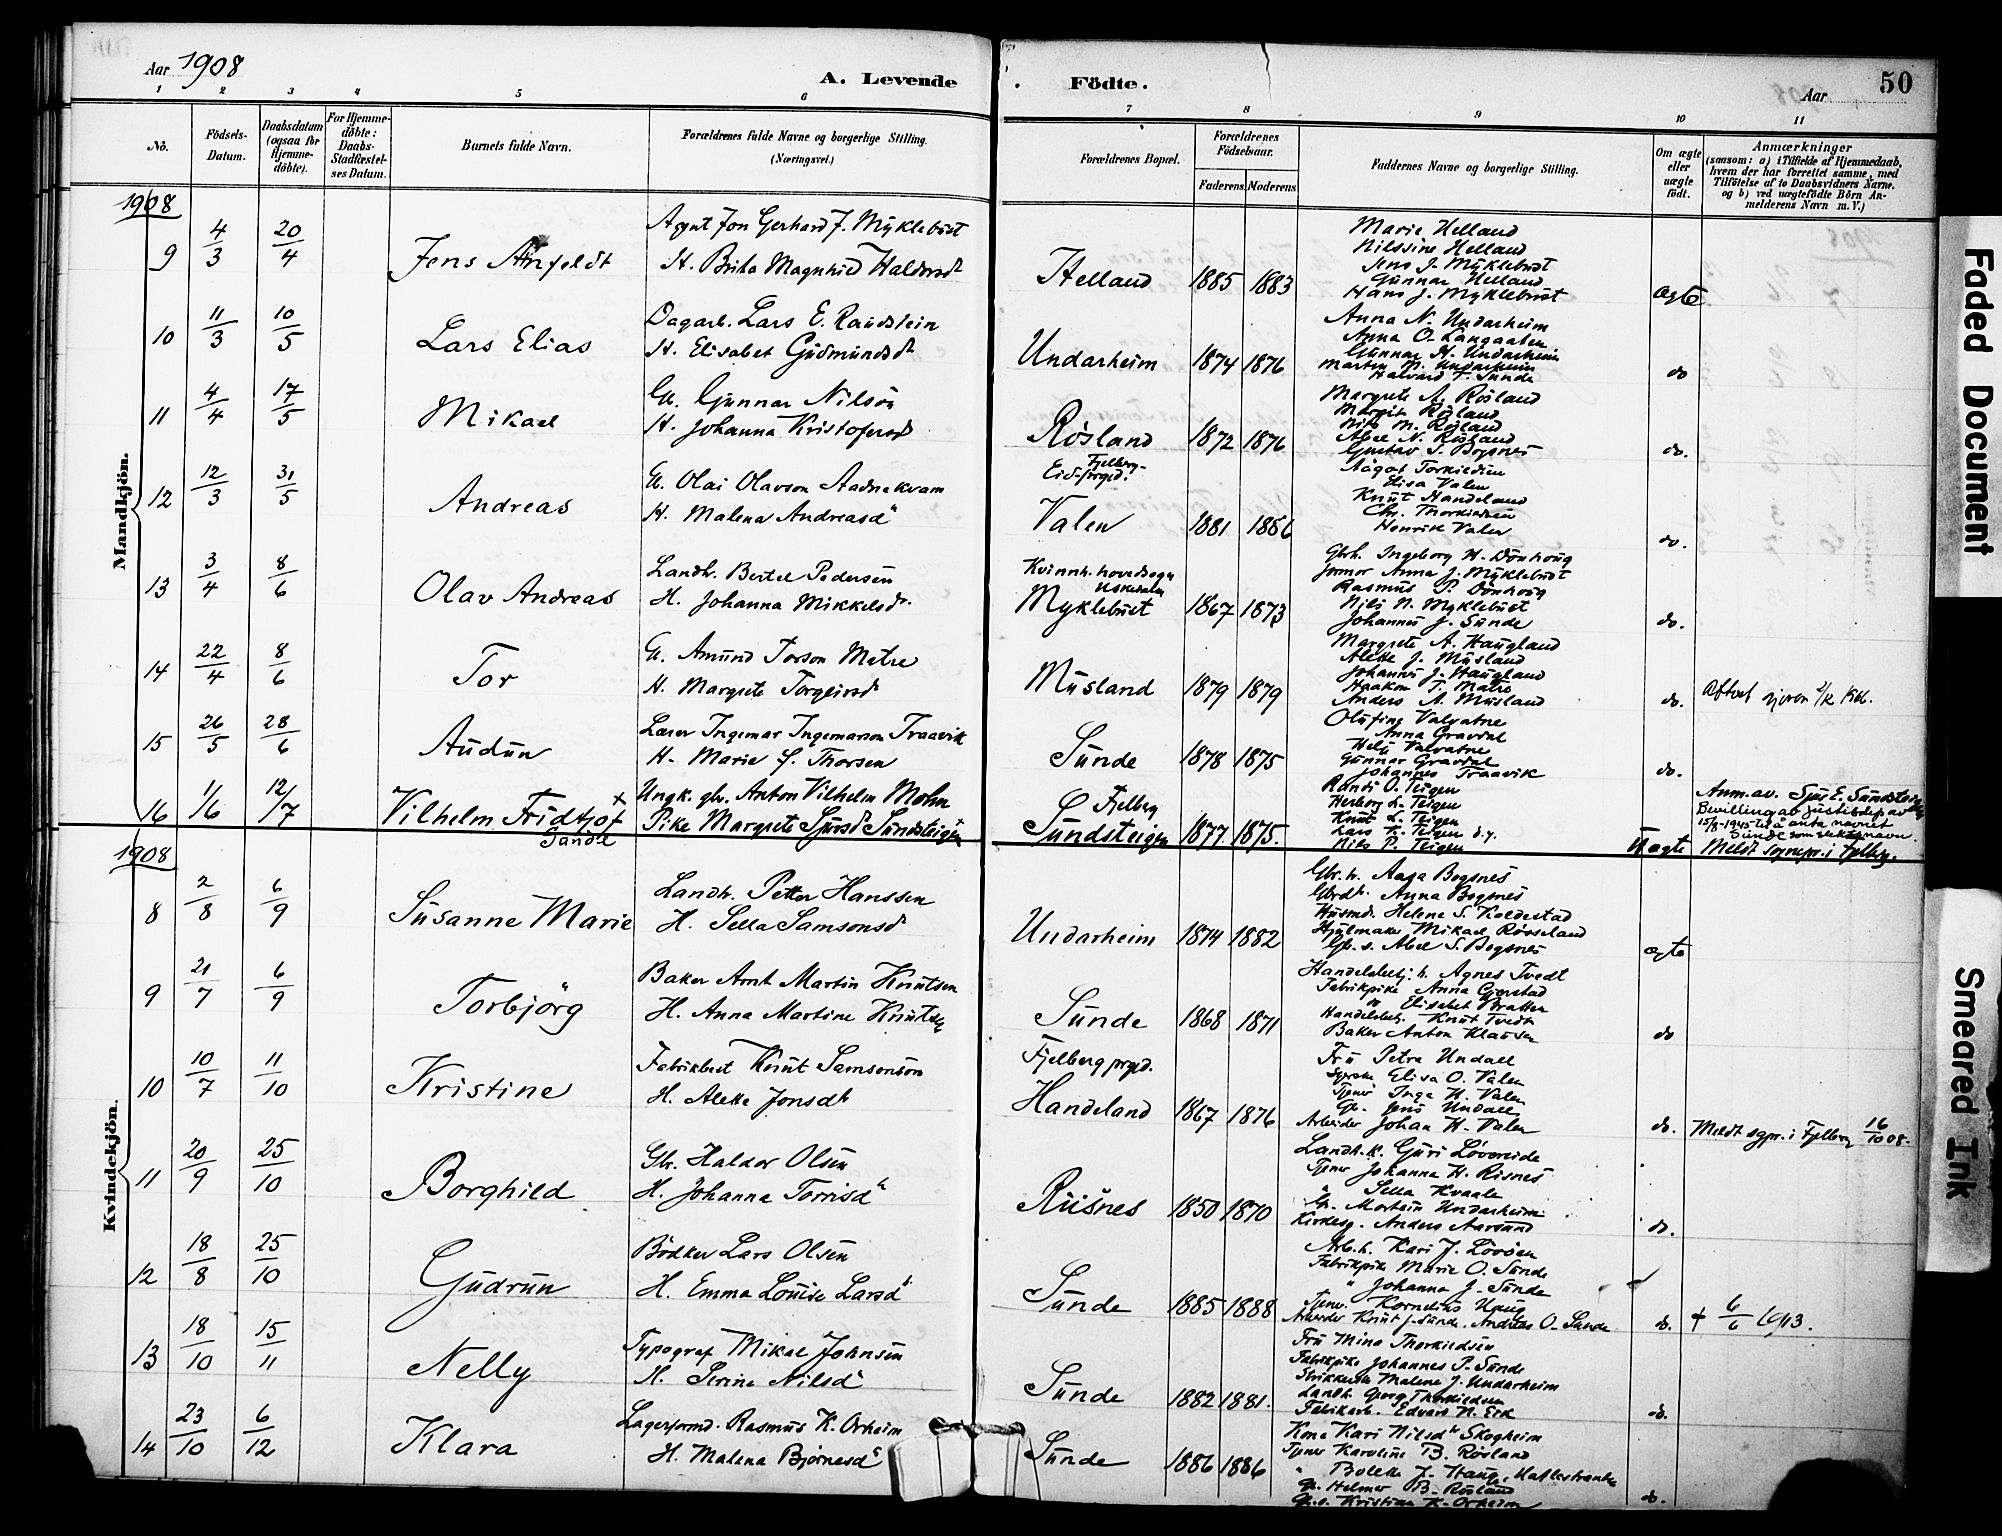 Aar 1908
A. Levende
Födte.
Aar
50
1 2 3 4 5 6 7 8 9 10 11
No.
Födsels-Datum.
Daabsdatum (ogsaa for Hjemme-döbte).
For Hjemme-döbte: Daabs-Stadfæstel-ses Datum.
Barnets fulde Navn.
Forældrenes fulde Navne og borgerlige Stilling.
(Næringsvei.)
Forældrenes Bopæl.
Forældrenes Födselsaar.
Faderens Moderens
Faddernes Navne og borgerlige Stilling.
Om ægte eller uægte födt.
Anmærkninger
(saasom: a) i Tilfælde af Hjemmedaab, hvem der har forrettet samme, med Tilföielse af to Daabsvidners Navne, og b) ved uægtefödte Börn Anmelderens Navn m. V.)
Mandkjön.
1908
9 4/3 20/4 Jens
Agent Jon Gerhard J. Myklebust
H. Brita Magnhild
Helland 1885 1883
Marie Helland
Nilssine Helland
Jens J. Myklebust
Gunnar Helland
Hans J. Myklebust
ægte
10 11/3 10/5 Lars Elias
Dagarb. Lars E. Raudstein
H. Elisabet Gudmundsdt
Undarheim 1874 1876
Anna N. Undarheim
Anna O. Langaaten
Gunnar H. Undarheim
Martin N. Undarheim
Halvard T. Sunde
do
11 4/4 17/5 Mikael
G. Gunnar Nilson
H. Johanna Kristofersd
Røsland 1872 1876
Margrete A. Røsland
Margit Røsland
Nils M. Røsland
Abel N. Røsland
Gustav S. Bogsnes
do.
12 12/3 31/5 Andreas
G. Olai Olavson Aadnekvam
H. Malena Andreasd
Fjelberg-
Eid-prgd.
Valen 1881 1886
Aagot Torkildsen
Elisa Valen
Knut Handeland
Chr. Thorkildsen
Henrik Valen
do.
13 3/4 8/6 Olav Andreas
Landh. Bertel Pedersen
H. Johanna Mikkelsdt.
Kvinnh. hovedsogn
Uskedalen
Myklebust 1867 1873
Gbrh. Ingeborg H. Dönhoug
Anna J. Myklebust
Rasmus P. Dönhoug
Nils N. Myklebust
Johannes J. Sunde
do.
14 22/4 8/6 Tor
G. Amund Torson Matre
H. Margrete Torgeirsd
Musland 1879 1879
Margrete A. Haugland
Alette J. Musland
Johannes J. Haugland
Haakon T. Matre
Anders A. Musland
do.
15 26/5 28/6 Audun
Lærer Ingemar Ingemarson Traavik
H. Marie S. Thorsen
Sunde 1878 1875
Olufine Valvatne
Anna Gravdal
Helje Valvatne
Gunnar Gravdal
Johannes Traavik
do.
16 1/6 12/7 Vilhelm Fridtjof x
Sunde
Ungk. gbr. Anton Vilhelm Mohn
Pike Margrete Sjursd Sundsteigen
Fjelberg
Sundsteigen 1877. 1875.
Randi O. Teigen
Herborg L. Teigen
Knut L. Teigen
Lars K. Teigen d.y.
Nils P. Teigen
Uægte
Anm. av. Sju E. Sundsteigen
Bevilling av Justisdep av
15/8-1945 til å anta navnet
Sunde som slektsnavn.
Meldt sognepr. i Fjelberg.
Kvindekjön.
1908
8 2/8 6/9 Susanne Marie
Landh. Petter Hanssen
H. Sella Samsonsd
Undarheim 1874 1882
Gbr.h. Aaga Bogsnes
Gbrdt. Anna Bogsnes
Husmd. Helene S. Koldestad
Hjulmaker Mikael Røsseland
Gb. s. Abel S. Bogsnes
ægte
9 21/7 6/9 Torbjörg
Baker Arnt Martin Knutsen
H. Anna Martine Knutsen
Sunde 1868 1871
Handelsbetj. h. Agnes Tvedt
Fabrikpike Anna Gjerstad
do Elisabet Bratten
Handelsbetj. Knut Tvedt
Baker Anton Klausen
do
10 10/7 11/10 Kristine
Fabrikbest Knut Samsonson
H. Alette Jonsdt
Fjelberg prgd.
Handeland 1867 1876
Fru Petra Undall
Syerske Elisa O. Valen
Tjener Inga H. Valen
Gb. Jens Undall
Arbeider Johan H. Valen
do.
Meldt sgpr. i Fjelberg 16/10 08.
11 20/9 25/10 Borghild
Gbr. Haldor Olsen
H. Johanna Torrisd
Riisnes 1850 1870
Landh. k. Guri Lövereide
Tjener Johanna H. Risnes
" Sella Kvaale
G. Mortein Undarheim
Kirkesg. Anders Aarsund
do.
12 18/8 25/10 Gudrun
Bödker Lars Olsen
H. Emma Louise Larsd
Sunde 1885 1888
Arb.h. Kari J. Lövöen
Fabrikpike Marie O. Sunde
" Johanna J. Sunde
Tjener. Kornelius Haug
Arbeider Knut J. Sunde. Andreas O. Sunde
do.
+ 6/6 1913.
13 18/10 15/11 Nelly
Typograf Mikal Johnsen
H. Serine Nilsd
Sunde 1882 1881.
Fru Mina Thorkildsen
Fabrikpike Johannes P. Sunde
Strikkerske Malene J. Undarheim
Landh. Georg Thorkildsen
Fabrikarb. Edvart N. Eik
do.
14 23/10 6/12 Klara
Lagerformd. Rasmus K. Orheim
H. Malena Bjørnesd
Sunde 1886 1886
Kone Kari Nilsdt Skogheim
Tjener Karoline B. Røsland
" Bolette J. Haug,
Gb. Helmer B. Røsland
Gb. s. Kristian K. Orheim
do.
Faded Document
Smeared Ink